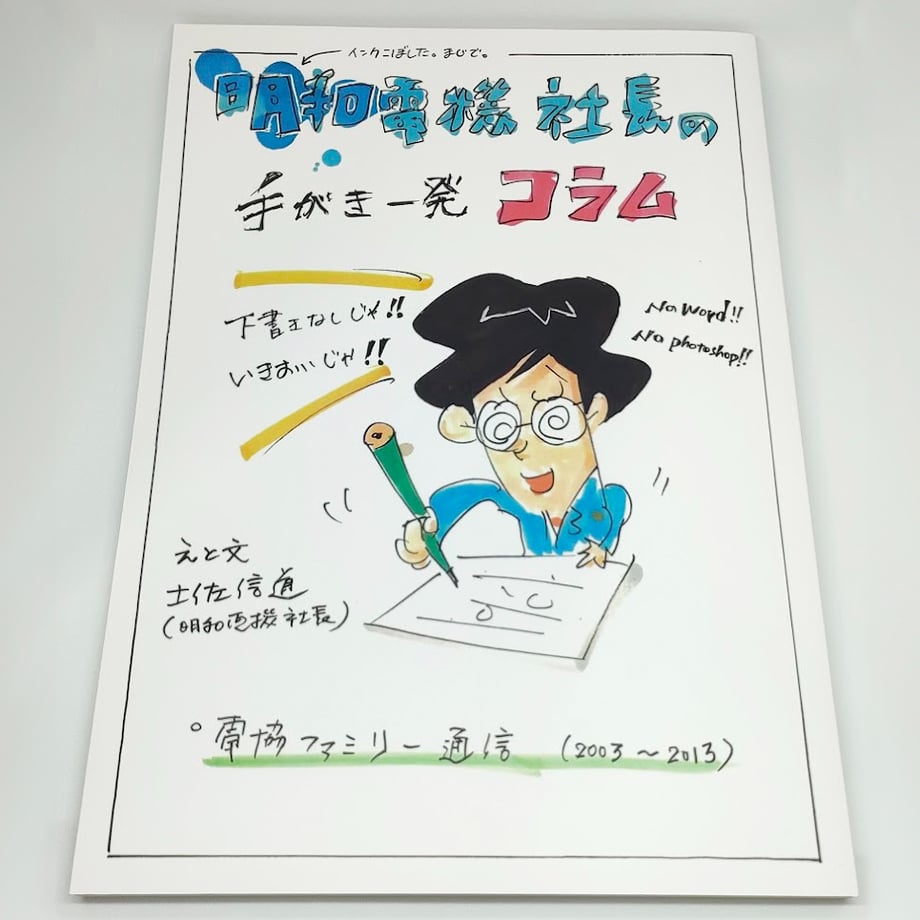 インクこぼした。まじで。
明和電機 社長の
手がき一発 コラム
下書きなしじゃ!!
いきおいじゃ!!
No Word!!
No photoshop!!
えと文
土佐信道
(明和电機社長)
電協ファミリー通信 (2003〜2013)